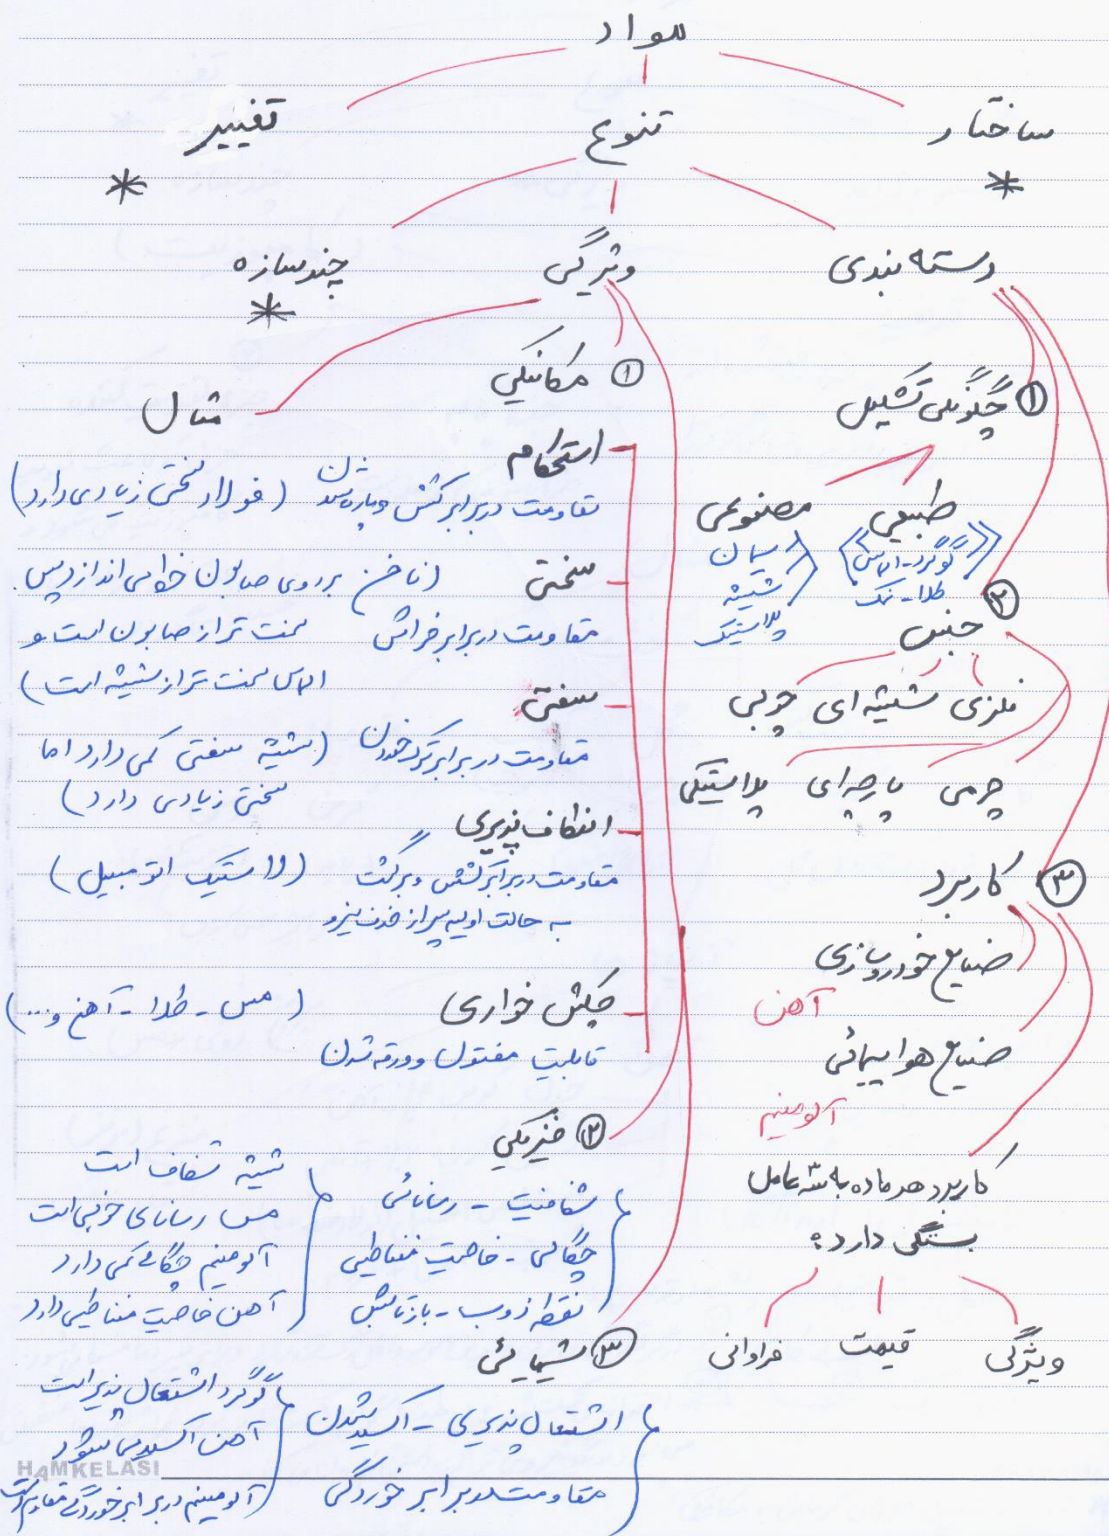 مواد
ساختار تنوع تغییر
* *
دسته بندی ویژگی چندسازه
*
① چگونگی تشکیل
طبیعی مصنوعی
گوگرد - الماس
طلا - نمک
سیمان
شیشه
پلاستیک
② جنس
فلزی شیشه ای چوبی
چرمی پارچه ای پلاستیکی
③ کاربرد
صنایع خودروسازی
آهن
صنایع هواپیمائی
آلومینیم
کاربرد هر ماده به سه عامل
بستگی دارد:
ویژگی قیمت فراوانی
① مکانیکی
مثال
استحکام
مقاومت در برابر کشش و پاره شدن (فولاد سختی زیادی دارد)
سختی (ناخن بر روی صابون خط می اندازد پس
مقاومت در برابر خراش سخت تر از صابون است و
الماس سخت تر از شیشه است)
سفتی
مقاومت در برابر ترک خوردن (شیشه سفتی کمی دارد اما
سختی زیادی دارد)
انعطاف پذیری
مقاومت در برابر کشش و برگشت (لاستیک اتومبیل)
به حالت اولیه پس از حذف نیرو
چکش خواری (مس - طلا - آهن و...)
قابلیت مفتول و ورقه شدن
② فیزیکی
شفافیت - رسانائی
چگالی - خاصیت مغناطیسی
نقطه ذوب - بازتابش
شیشه شفاف است
مس رسانای خوبی است
آلومینیم چگالی کمی دارد
آهن خاصیت مغناطیسی دارد
③ شیمیائی
اشتعال پذیری - اکسید شدن
مقاومت در برابر خوردگی
گوگرد اشتعال پذیر است
آهن اکسید می شود
آلومینیم در برابر خوردگی مقاوم است
HAMKELASI